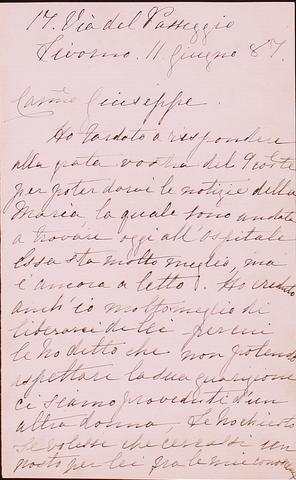 17. Via del Passeggio
Livorno. 11. Giugno 87.
Carmo Giuseppe.
Ho tardato a rispondere
alla grata vostra del 9 corte
per poter darvi le notizie della
Maria, la quale sono andata
a trovare oggi all'Ospitale
essa sta molto meglio, ma
è ancora a letto. Ho creduto
anch'io molto meglio di
liberarci di lei perciò
le ho detto che non potendo
aspettare la sua guarigione
ci siamo provveduti d'un
altra donna, le ho chiesto
se volesse che cercassi un
posto per lei fra le mie